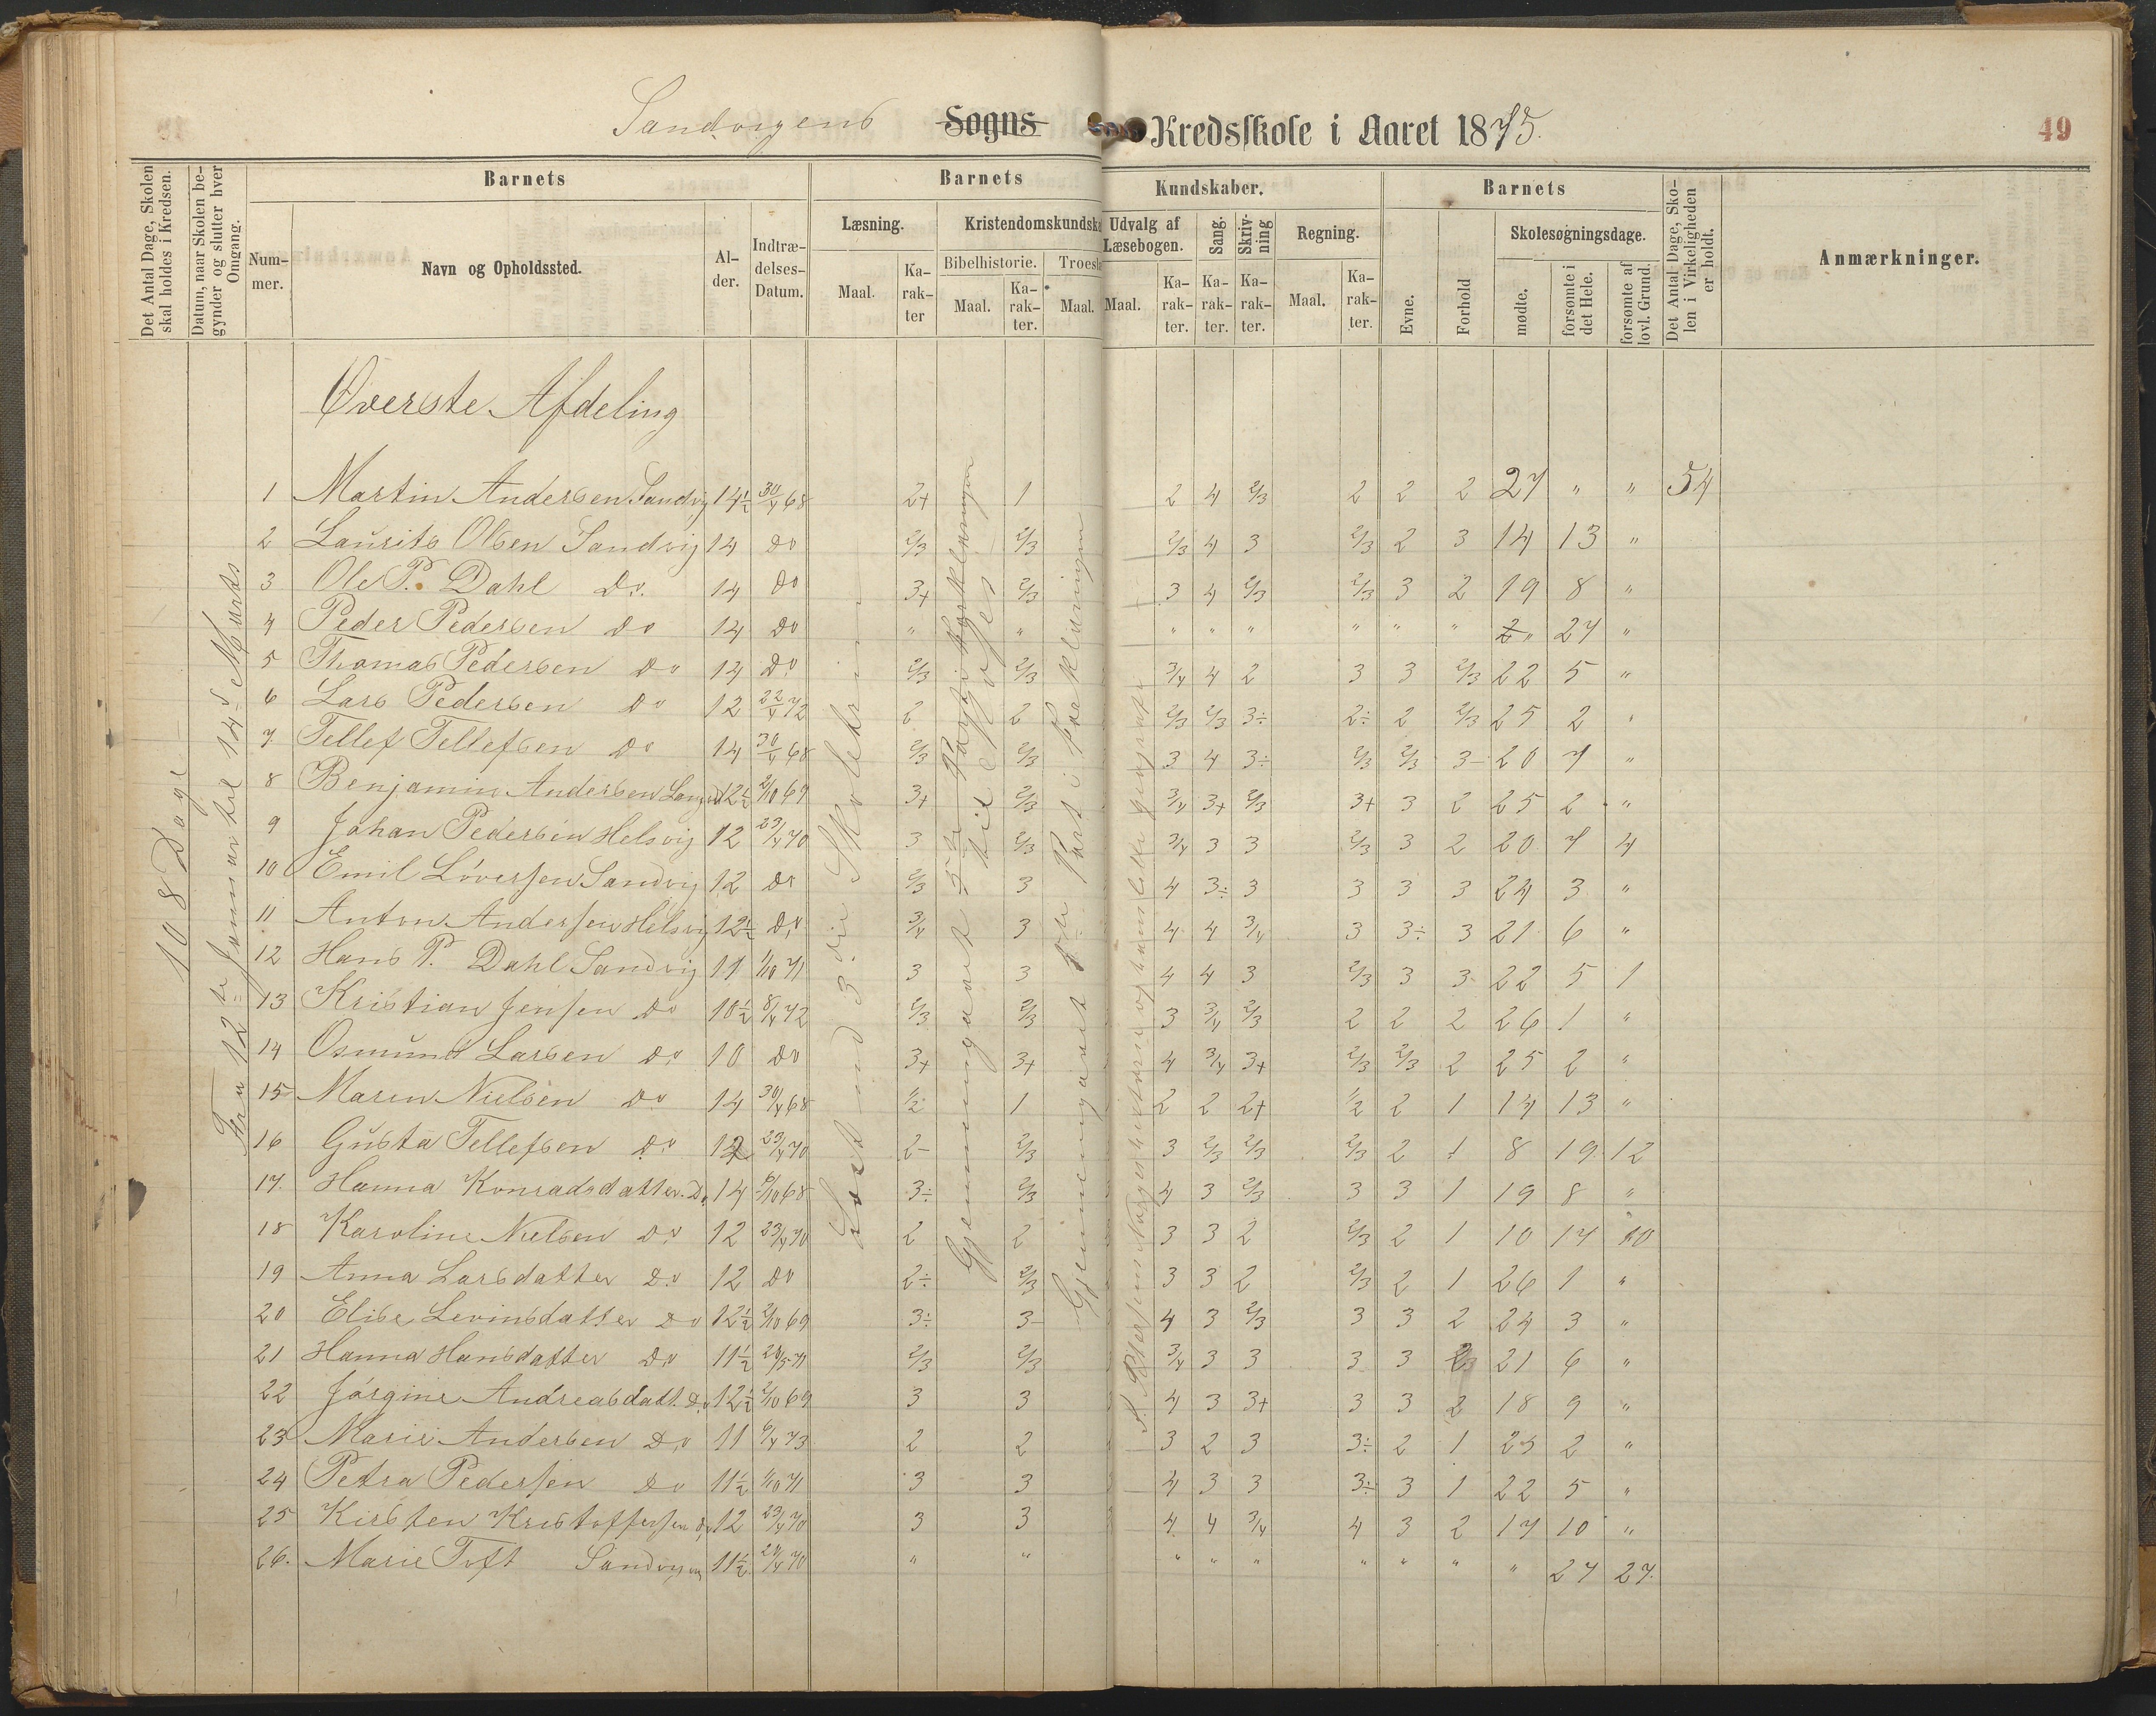 Sandvigens Sogns Kredsskole i Aaret 1875.
49
Det Antal Dage, Skolen skal holdes i Kredsen.
Datum, naar Skolen begynder og slutter hver Omgang.
Barnets
Nummer.
Navn og Opholdssted.
Alder.
Indtrædelses-Datum.
Barnets
Kundskaber.
Læsning.
Maal.
Karakter
Kristendomskundska
Bibelhistorie.
Maal.
Karakter.
Troesl
Maal.
Udvalg af Læsebogen.
Maal.
Karakter.
Sang.
Karakter.
Skrivning
Karakter.
Regning.
Maal.
Karakter.
Barnets
Evne.
Forhold
Skolesøgningsdage.
mødte.
forsømte i det Hele.
forsømte af lovl. Grund.
Det Antal Dage, Skolen i Virkeligheden er holdt.
Anmærkninger.
108 Dage
Fra 12te Januar til 14de Marts
Øverste Afdeling
1 Martin Andersen Sandvig 14½ 30/4 68 2+ 1 2 4 2/3 2 2 2 27 " " 54
2 Laurits Olsen Sandvig 14 do 2/3 2/3 2/3 4 3 2/3 2 3 14 13 "
3 Ole P. Dahl do. 14 do 3+ 2/3 3 4 2/3 2/3 3 2 19 8 "
4 Peder Pedersen do 14 do " " " " " " " " " 27 "
5 Thomas Pedersen do 14 do 2/3 2/3 3/4 4 2 3 3 2/3 22 5 "
6 Lars Pedersen do 12 22/4 72 2 2 2/3 2/3 3÷ 2÷ 2 2/3 25 2 "
7. Tellef Tellefsen do 14 30/4 68 2/3 2/3 3 4 3÷ 2/3 2/3 3- 20 7 "
8 Benjamin Andersen 12½ 2/10 69 3+ 2/3 3/4 3+ 2/3 3+ 3 2 25 2 "
9 Johan Pedersen Helsvig 12 23/4 70 3 2/3 3/4 3 3 2/3 3 2 20 7 4
10 Emil Løversen Sandvig 12 do 2/3 3 4 3÷ 3 3 3 3 24 3 "
11 Anton Andersen Helsvig 12½ do 3/4 3 4 4 3/4 3 3÷ 3 21 6 "
12 Hans P. Dahl Sandvig 11 1/10 71 3 3 4 4 3 2/3 3 3 22 5 1
13 Kristian Jensen do 10½ 8/4 72 2/3 2/3 3 3/4 2/3 2 2 2 26 1 "
14 Osmund Larsen do 10 do 3+ 3+ 4 3/4 3+ 2/3 2/3 2 25 2 "
15 Maren Nielsen do 14 30/4 68 1/2 1 2 2 2+ 1/2 2 1 14 13 "
16 Gusta Tellefsen do 12 23/4 70 2- 2/3 3 2/3 2/3 2/3 2 1 8 19 12
17. Hanna Konradsdatter Do 14 6/10 68 3÷ 2/3 4 3 2/3 3 3 1 19 8 "
18 Karoline Nielsen do 12 23/4 70 2 2 3 3 2 2/3 2 1 10 17 10
19 Anna Larsdatter do 12 do 2÷ 2/3 3 3 2 2/3 2 1 26 1 "
20 Elise Levinsdatter do 12½ 2/10 69 3÷ 3- 4 3 2/3 3 3 2 24 3 "
21 Hanna Hansdatter do 11½ 2/3 2/3 3/4 3 3 3 3 21 6 "
22 Jørgine Andreasdatt. do 12½ 2/10 69 3 3 4 3 3+ 3 3 2 18 9 "
23 Marie Andersen do 11 6/4 73 2 2 3 2 3 3÷ 2 1 25 2 "
24 Petra Pedersen do 11½ 1/10 71 3 3 4 3 3 3÷ 3 1 22 5 "
25 Kirsten Kristoffersen do 12 23/4 70 3 3 4 4 3/4 4 3 2 17 10 "
26. Marie Toft Sandvigen 11½ " " " " " " " " " 27 27.
Læst ind 3die Skoletrin
Gjennemgaaet 5te Part i Forklaringen til
Gjennemgaaet 1ste Part i Forklaringen